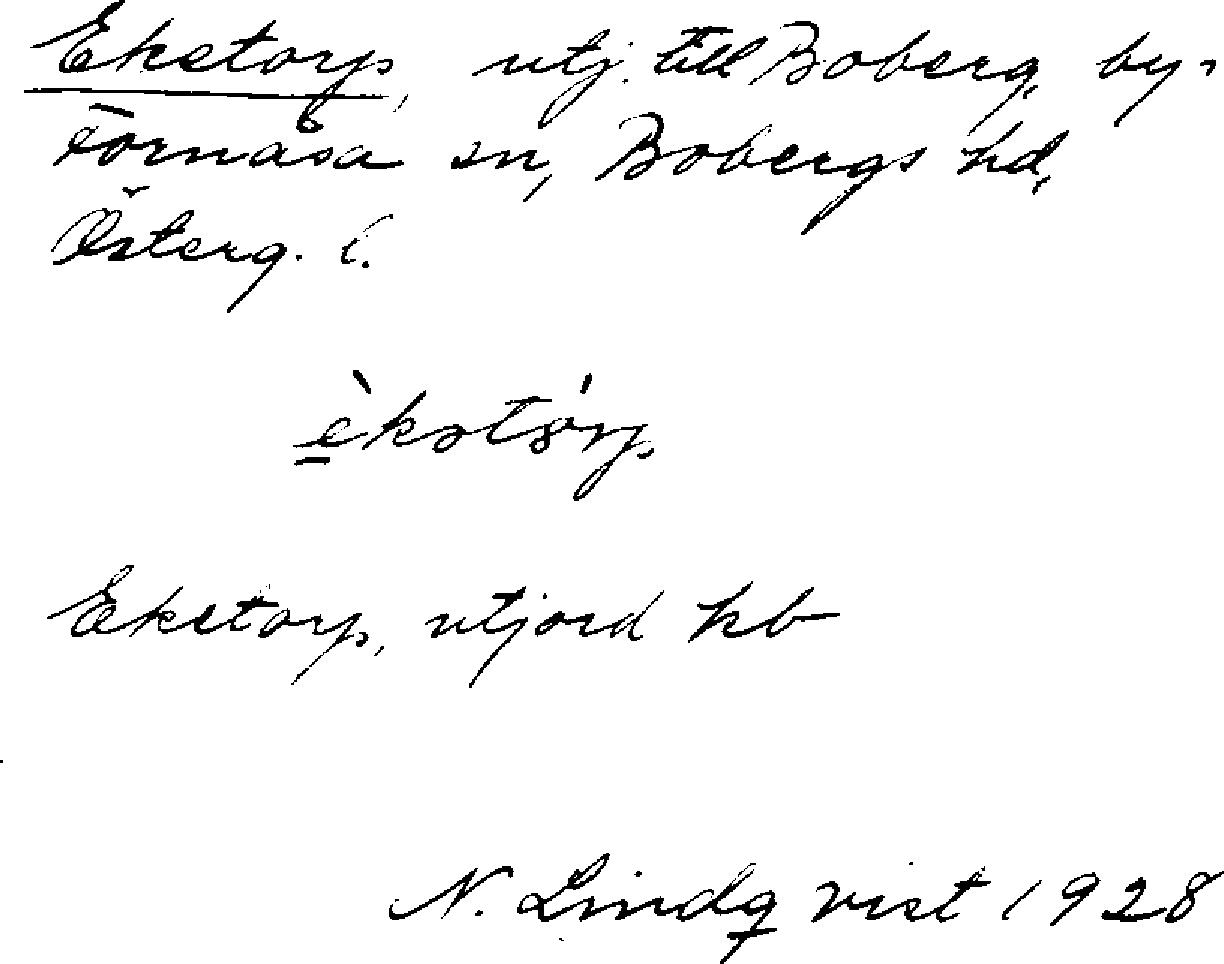 Ekstorp, utj. till Boberg, by,
Fornåsa sn, Bobergs hd,
Österg. l.
Ekstorp, utjord kb
N. Lindqvist 1928